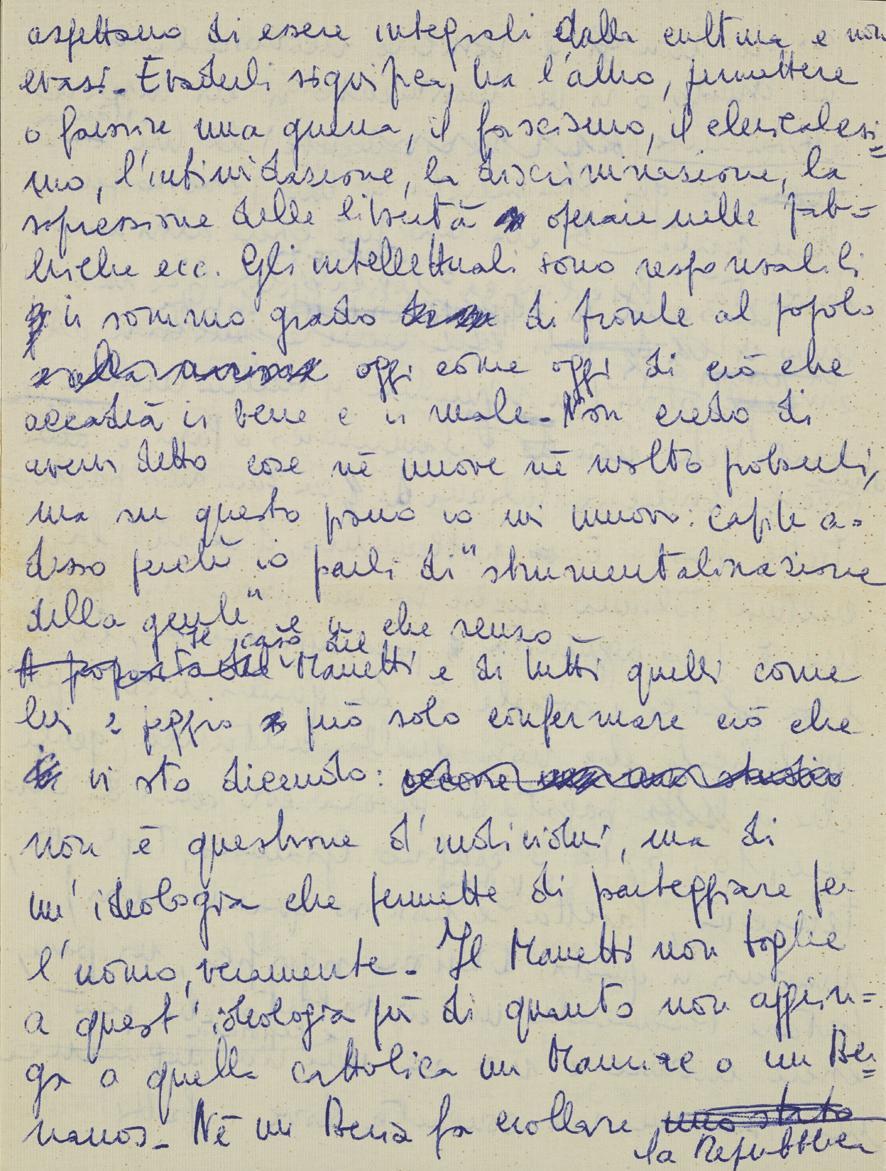 aspettano di essere integrali dalla cultura e non
evasi. Evaderli significa, tra l'altro, permettere
o favorire una guerra, il fascismo, il clericalesi=
mo, l'intimidazione, la discriminazione, la
sopressione delle libertà operaie nelle fab=
briche ecc. Gli intellettuali sono responsabili
in sommo grado di fronte al popolo
oggi come oggi di ciò che
accadrà in bene e in male. Non credo di
avervi detto cose nè nuove nè molto
ma su questo piano io mi muovo: capite a=
desso perchè io parli di "strumentalizzazione
della gente" e in che senso.
Il caso del
A proposito del Manetti e di tutti quelli come
lui e peggio può solo confermare ciò che
vi sto dicendo:
non è questione d'individui, ma di
un'ideologia che permette di parteggiare per
l'uomo, veramente. Il Manetti non toglie
a quest'ideologia più di quanto non aggiun=
ga a quella cattolica un Mauriac o un Ber=
nanos. Nè un Beria fa crollare uno stato
la Repubblica